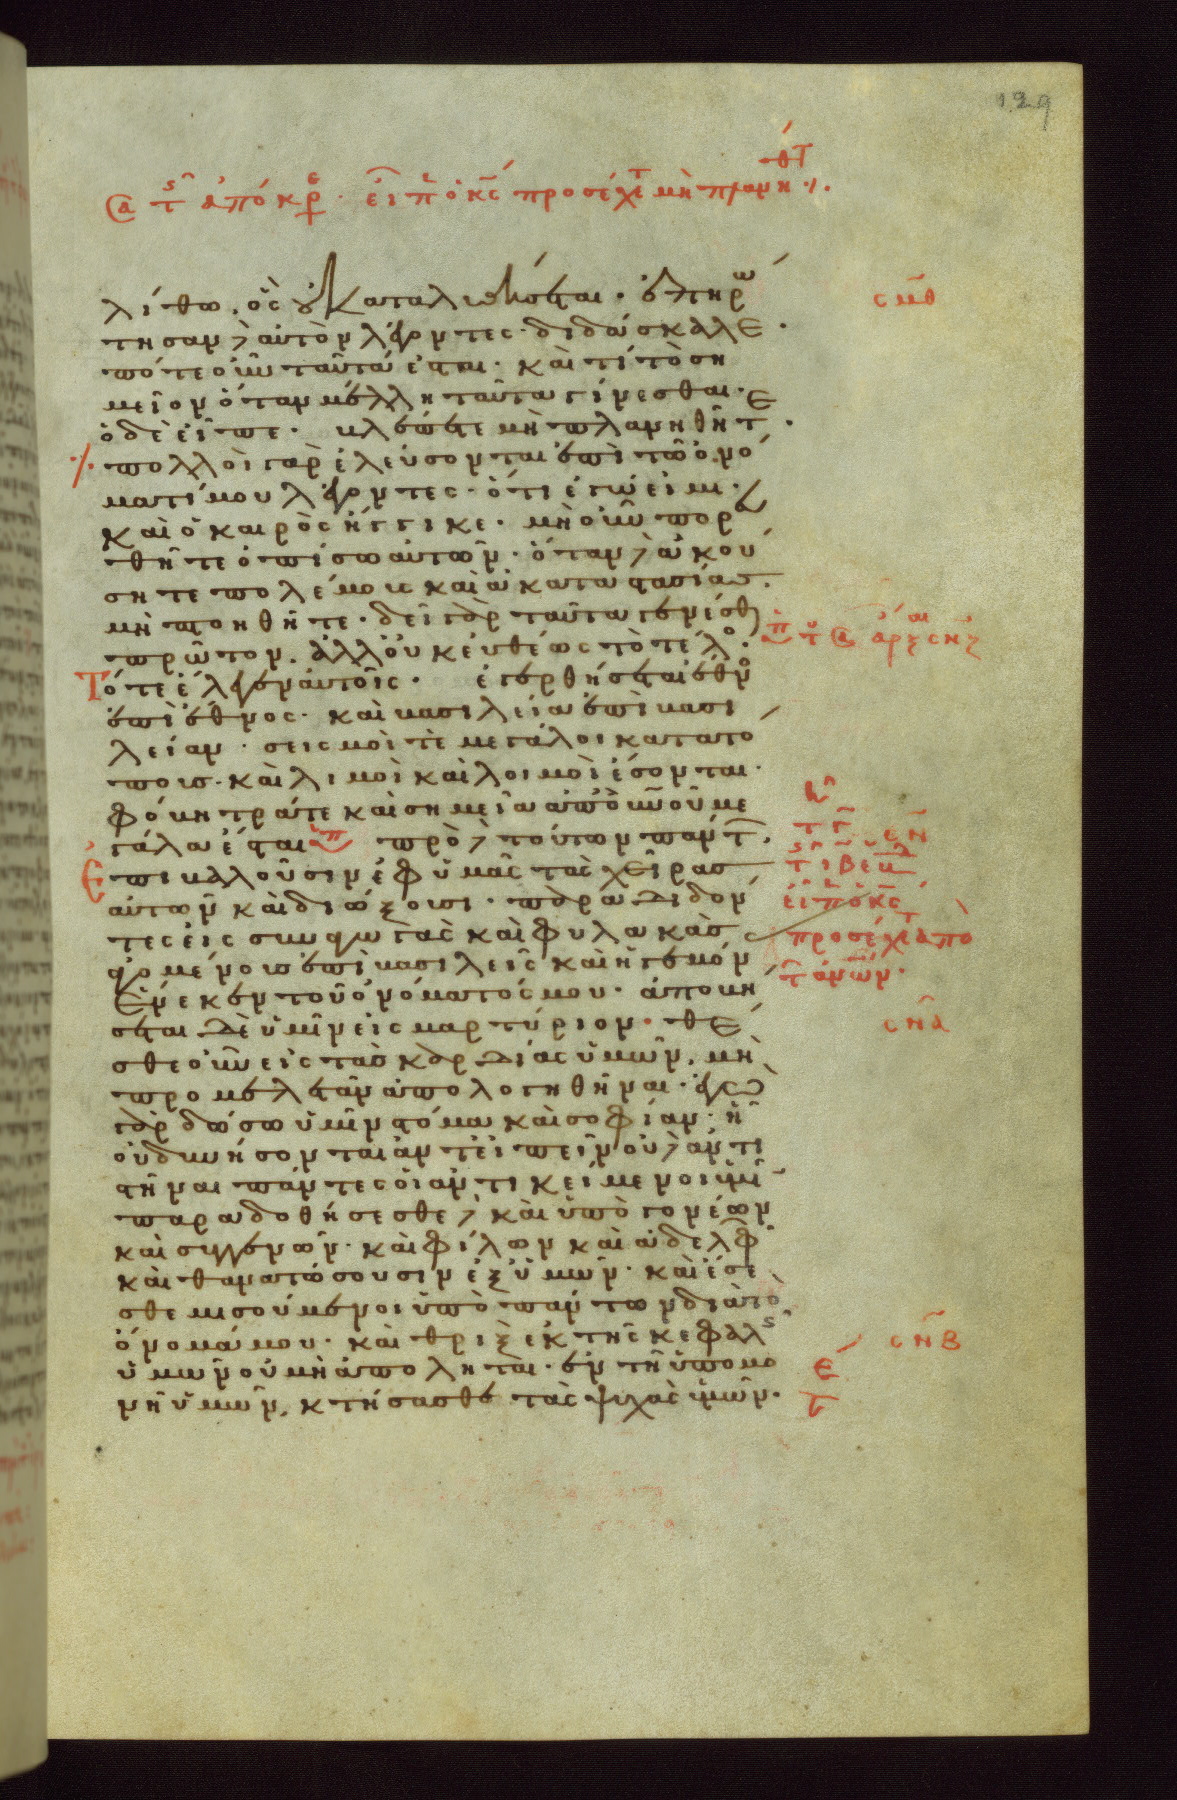 129
λίθω, ὃς οὐ καταλυθήσεται· ἐπηρώ
τησαν δὲ αὐτὸν λέγοντες· διδάσκαλε·
πότε οὖν ταῦτα ἔσται· καὶ τί τὸ ση
μεῖον ὅταν μέλλη ταῦτα γίνεσθαι·
ὁ δὲ εἶπε· βλέπετε μὴ πλανηθῆτε·
πολλοὶ γὰρ ἐλεύσονται ἐπὶ τῶ ὀνό
ματί μου λέγοντες· ὅτι ἐγώ εἰμι·
καὶ ὁ καιρὸς ἤγγικε· μὴ οὖν πορευ
θῆτε ὀπίσω αὐτῶν· ὅταν δὲ ἀκού
σητε πολέμους καὶ ἀκαταστασίας·
μὴ πτοηθῆτε· δεῖ γὰρ ταῦτα γενέσθαι
πρῶτον· ἀλλ' οὐκ εὐθέως τὸ τέλος·
Τότε ἔλεγεν αὐτοῖς· ἐγερθήσεται ἔθνος
ἐπὶ ἔθνος· καὶ βασιλεία ἐπὶ βασι
λείαν· σεισμοί τε μεγάλοι κατὰ τό
πους· καὶ λιμοὶ καὶ λοιμοὶ ἔσονται·
φόβητρά τε καὶ σημεῖα ἀπὸ οὐνοῦ με
γάλα ἔσται πρὸ δὲ τούτων πάντων,
Ἐπιβαλοῦσιν ἐφ' ὑμᾶς τὰς χεῖρας
αὐτῶν καὶ διώξουσι· παραδιδόν
τες εἰς συναγωγὰς καὶ φυλακάς
ἀγομένους ἐπὶ βασιλεῖς καὶ ἡγεμόν
ἕνεκεν τοῦ ὀνόματός μου· ἀποβή
σεται δὲ ὑμῖν εἰς μαρτύριον· θέ
σθε οὖν εἰς τὰς καρδίας ὑμῶν, μὴ
προμελετᾶν ἀπολογηθῆναι· ἐγὼ
γὰρ δώσω ὑμῖν στόμα καὶ σοφίαν· ἧ
οὐ δυνήσονται ἀντειπεῖν οὐδὲ ἀντι
στῆναι πάντες οἱ ἀντικείμενοι ὑμῖν
παραδοθήσεσθε δὲ καὶ ὑπὸ γονέων
καὶ συγγενῶν· καὶ φίλων καὶ ἀδελφῶν
καὶ θανατώσουσιν ἐξ ὑμῶν· καὶ ἔσε
σθε μισούμενοι ὑπὸ πάντων διὰ τὸ
ὄνομά μου· καὶ θρὶξ ἐκ τῆς κεφαλῆς
ὑμῶν οὐ μὴ ἀπόληται· ἐν τῆ ὑπομο
νῆ ὑμῶν, κτήσασθε τὰς ψυχὰς ὑμῶν·
εἶπεν ὁ κς
προσέχετε ἀπὸ
τῶν ἀνων·
σνα
σνβ